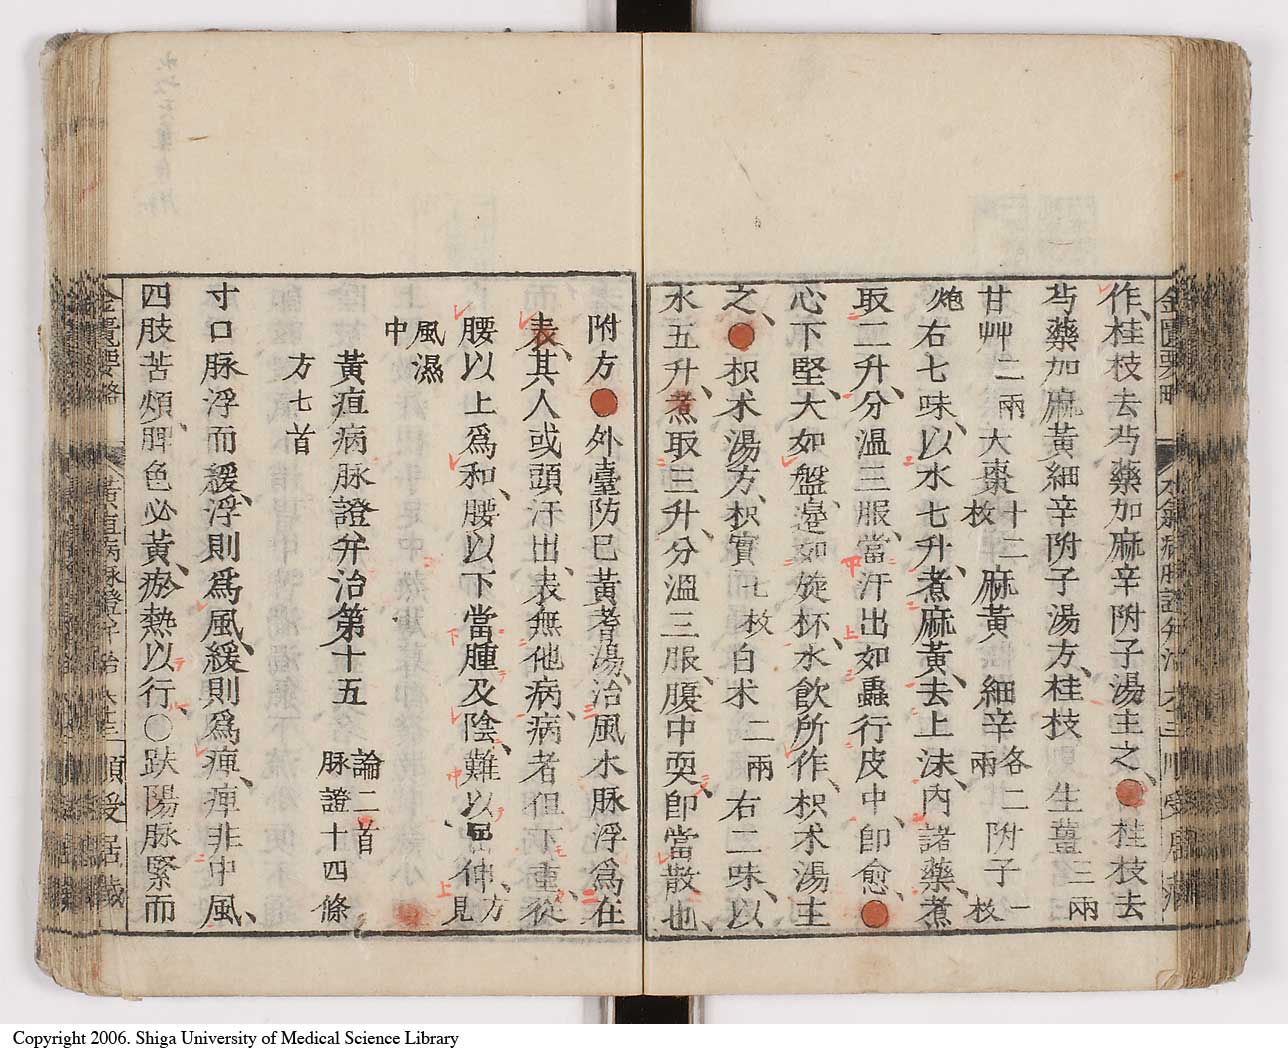 作桂枝去芍藥加麻辛附子湯主之●桂枝去
芍藥加麻黃細辛附子湯方桂枝 生薑三兩
甘艸二兩大棗十二枚麻黃 細辛各二兩附子一枚
炮右七味以水七升煮麻黃去上沫內諸藥煮
取二升分溫三服當汗出如蟲行皮中卽愈●
心下堅大如盤邉如旋杯水飲所作枳朮湯主
之●枳朮湯方枳實七枚白朮二兩右二味以
水五升煮取三升分溫三服腹中耎卽當散也
附方●外臺防已黃耆湯治風水脉浮爲在
表其人或頭汗出表無他病病者但下重從
腰以上爲和腰以下當腫及陰難以屈伸方見
風濕中
黃疸病脉證幷治第十五 論二首脉證十四條
方七首
寸口脉浮而緩浮則爲風緩則爲痺痺非中風
四肢苦煩脾色必黃瘀熱以行○趺陽脉緊而
金匱要略 黃疸病脉證幷治
Copyright 2006. Shiga University of Medical Science Library